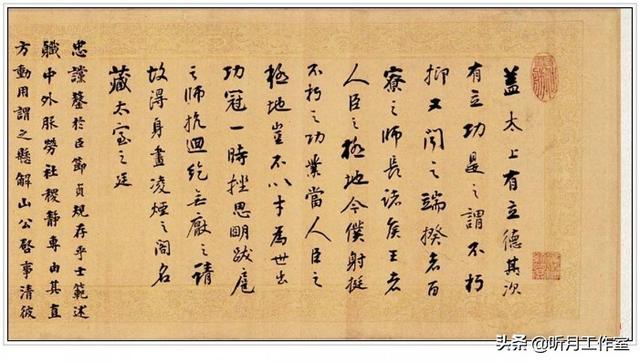 盖太上有立德其次
有立功是之謂不朽
抑又聞之端揆者百
寮之師長諸侯王者
人臣之極地今僕射挺
不朽之功業當人臣之
極地豈不以才為世出
功冠一時挫思明跋扈
之師抗迴紇無厭之請
故得身畫凌煙之閣名
藏太室之廷
忠讜罄於臣節貞規存乎士範述
職中外服勞社稷靜專由其直
方動用謂之懸解山公啓事清彼
头条 @听月工作室